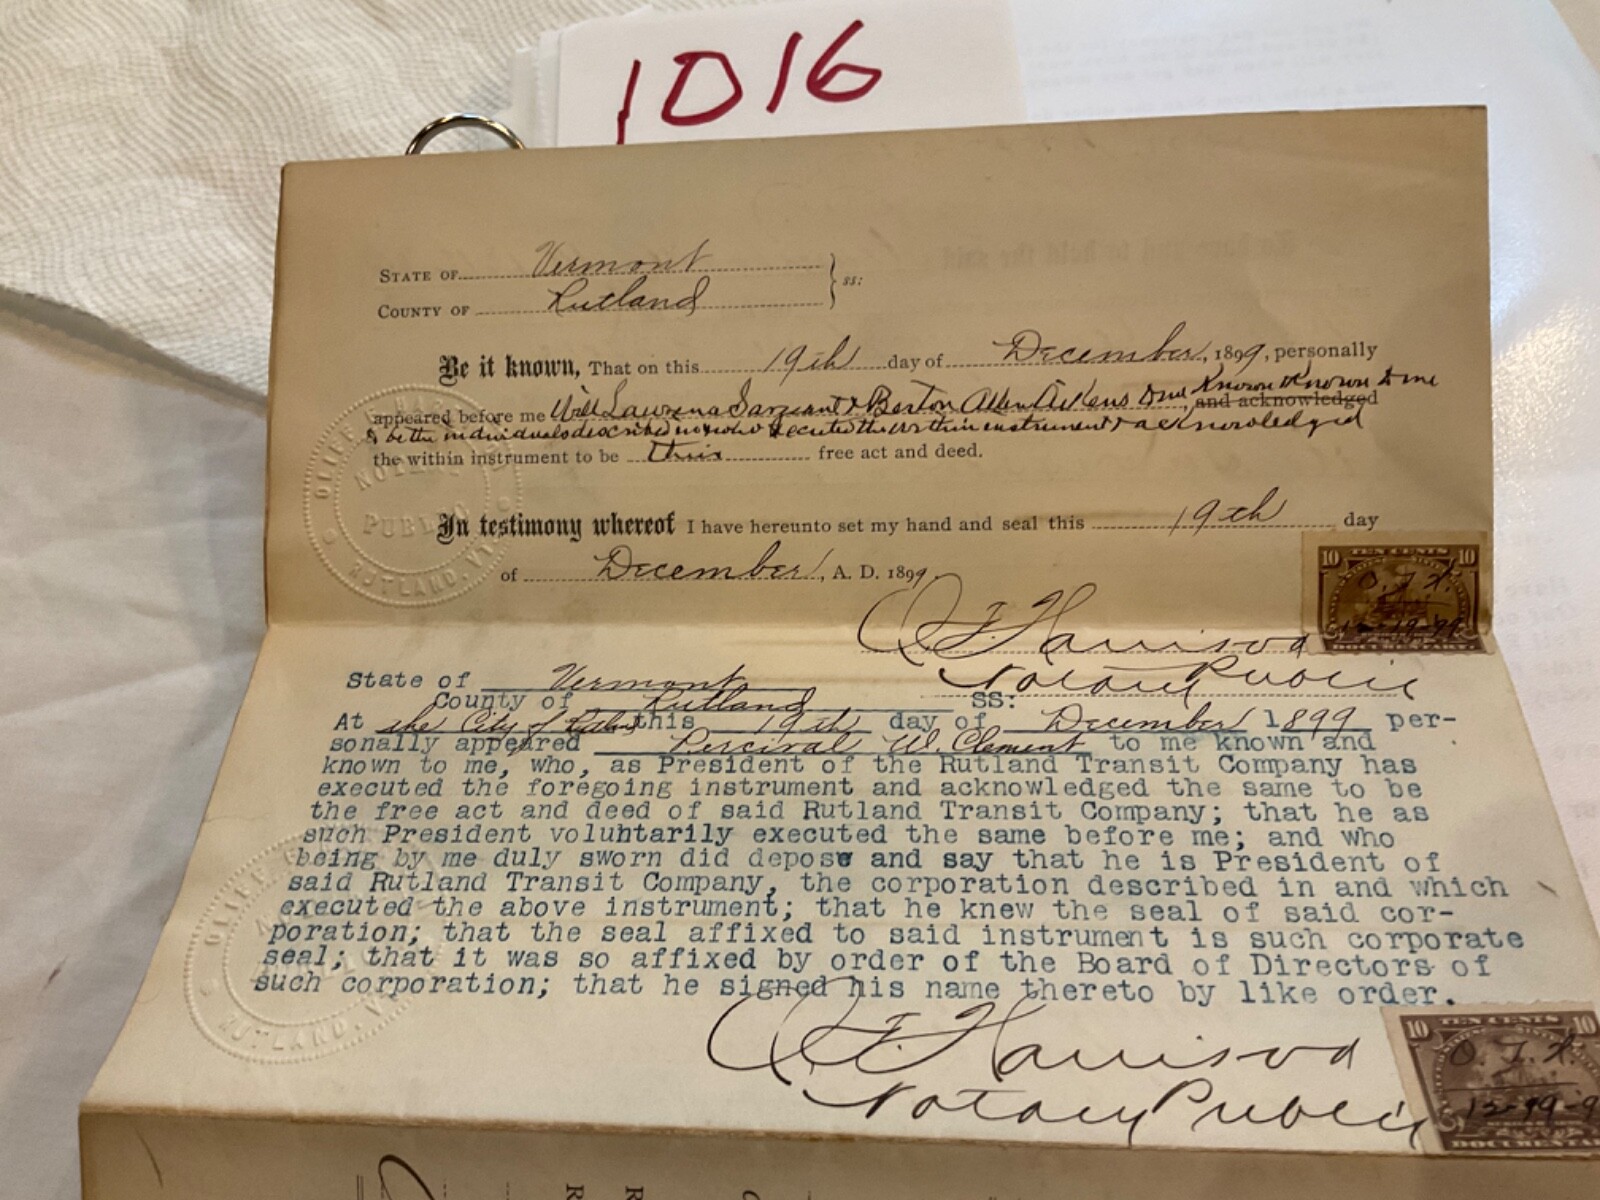 1016
STATE OF Vermont
COUNTY OF Rutland ss:
Be it known, That on this 19th day of December, 1899, personally
Known & Known to me
appeared before me Will Lawrence Sargeant & Berton Allen Aikens to me, and acknowledged
to be the individuals described in & who executed the within instrument & acknowledged
the within instrument to be their free act and deed.
In testimony whereof I have hereunto set my hand and seal this 19th day
of December, A. D. 1899.
Harrison
Notary Public
TEN CENTS
10 10
12-19-99
DOCUMENTARY
NOTARY
PUBLIC
RUTLAND, VT.
State of Vermont
County of Rutland SS:
At the City of Rutland this 19th day of December 1899 per-
sonally appeared Percival W. Clement to me known and
known to me, who, as President of the Rutland Transit Company has
executed the foregoing instrument and acknowledged the same to be
the free act and deed of said Rutland Transit Company; that he as
such President voluhtarily executed the same before me; and who
being by me duly sworn did depose and say that he is President of
said Rutland Transit Company, the corporation described in and which
executed the above instrument; that he knew the seal of said cor-
poration; that the seal affixed to said instrument is such corporate
seal; that it was so affixed by order of the Board of Directors of
such corporation; that he signed his name thereto by like order.
Harrison
Notary Public
TEN CENTS
10 10
12-19-9
DOCUMENTA
RUTLAND, V